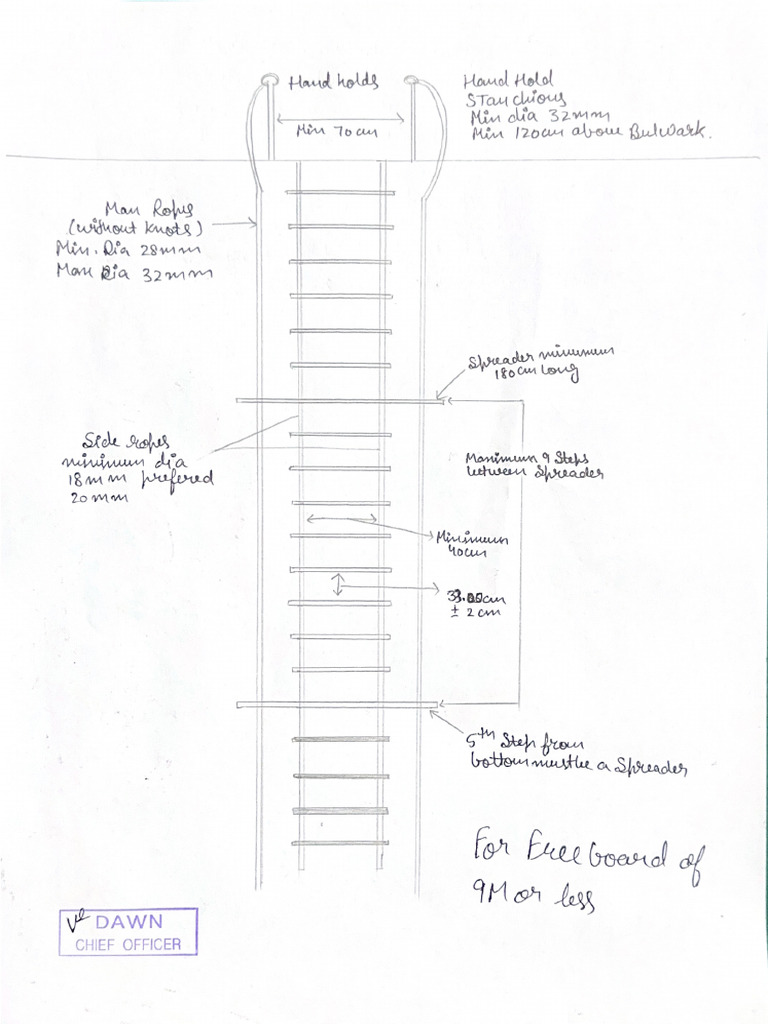 Hand holds
Min 70cm
Hand Hold
Stanchions
Min dia 32mm
Min 120cm above Bulwark.
Man Ropes
(without knots)
Min. Dia 28mm
Max Dia 32mm
Spreader minimum
180cm long
Side ropes
minimum dia
18mm prefered
20mm
Maximum 9 Steps
between Spreader
Minimum
40cm
± 2cm
5th Step from
bottom must be a Spreader
For Freeboard of
9M or less
DAWN
CHIEF OFFICER